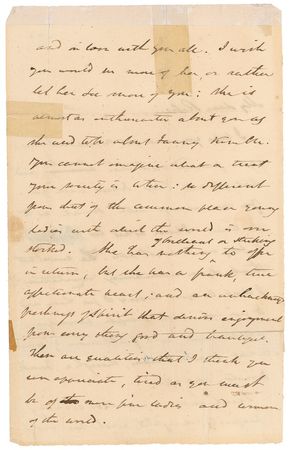 and in love with you all. I wish
you would see more of her, or rather
let her see more of you: she is
almost as enthusiastic about you as
she used to be about Fanny Kemble.
You cannot imagine what a treat
your society is to her: so different
from that of the common place young
ladies with which the world is over
stocked. She has nothing brilliant or striking to offer
in return, but she has a frank, true
affectionate heart; and an unhackneyed
freshness of spirit that derives enjoyment
from every thing good and beautiful.
These are qualities that I think you
can appreciate, tired as you must
be of mere fine ladies and women
of the world.